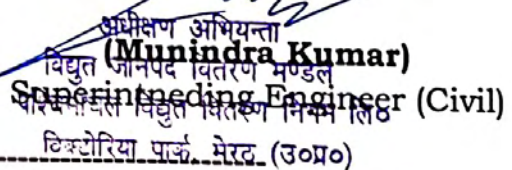 अधीक्षण अभियन्ता
(Munindra Kumar)
विद्युत जानपद वितरण मण्डल
Superintneding Engineer (Civil)
विद्युत वितरण निगम लि०
विक्टोरिया पार्क, मेरठ (उ०प्र०)